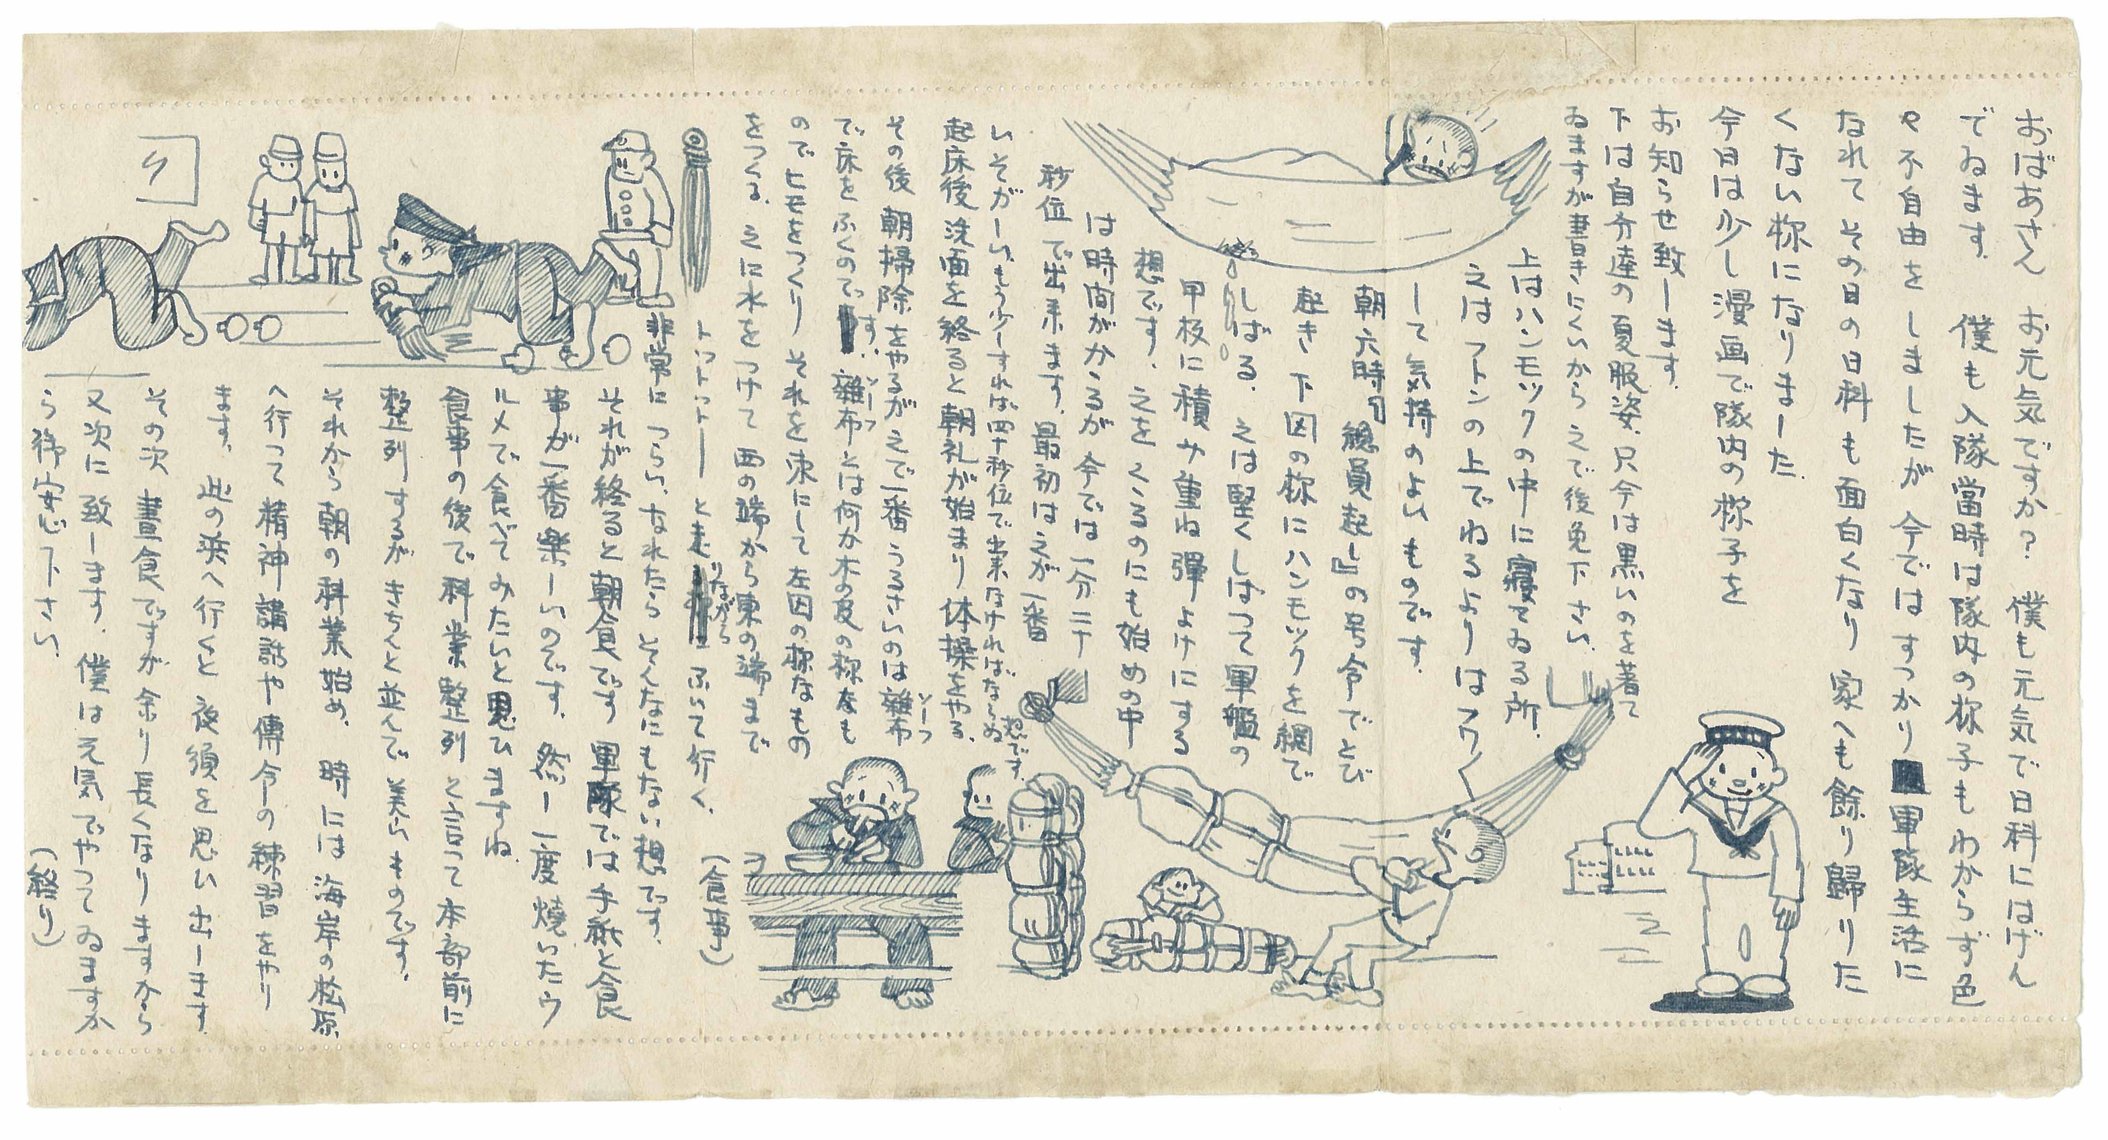 おばあさん お元気ですか? 僕も元気で日科にはげん
でゐます。 僕も入隊當時は隊内の様子もわからず色
々不自由をしましたが今ではすつかり軍隊生活に
なれてその日の日科も面白くなり家へも餘り歸りた
くない様になりました
今日は少し漫画で隊内の様子を
お知らせ致します。
下は自分達の夏服姿、只今は黒いのを著て
ゐますが書きにくいから之で後免下さい。
上はハンモックの中に寝てゐる所。
之はフトンの上でねるよりはフワく
して気持のよいものです。
朝六時 総員起し』の号令でとび
起き下図の様にハンモックを網で
しばる。 之は堅くしばつて軍艦の
甲板に積み重ね彈よけにする
想です。之をくるのにも始めの中
は時間がかるが今では一分二十
秒位で出来ます。最初は之が一番
いそがしい、もう少しすれば四十秒位で出来なければならぬ
想です。
起床後洗面を終ると朝礼が始まり体操をやる。
その後朝掃除をやるが之で一番うるさいのは雑布
ソーフ
で床をふくのです、雑布とは何か木の皮の様なも
ソーフ
のでヒモをつくりそれを束にして左図の様なもの
をつくる。之に水をつけて西の端から東の端まで
トットットーと走りながらふいて行く、
非常につらい、なれたらそんなにもない想です。
(食事)
それが終ると朝食です 軍隊では手紙と食
事が一番楽しいのです。然し一度焼いたウ
ルメで食べてみたいと思ひますね
食事の後で科業整列と言つて本部前に
整列するがきちんと並んで美しいものです。
それから朝の科業始め、 時には海岸の松原
へ行つて精神講話や傳令の練習をやり
ます。 此の浜へ行くと夜須を思い出します
その次 晝食ですが余り長くなりますから
又次に致します。僕は元気でやつてゐますか
ら御安心下さい。
(終り)